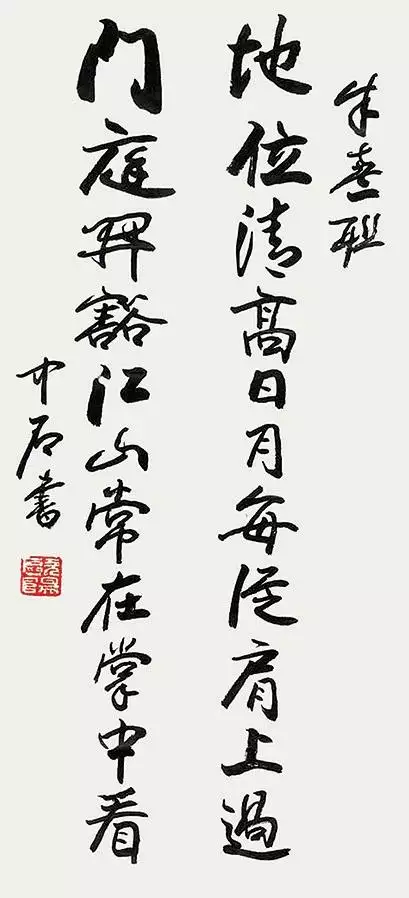 朱熹联
地位清高日月每從肩上過
门庭開豁江山常在掌中看
中石書